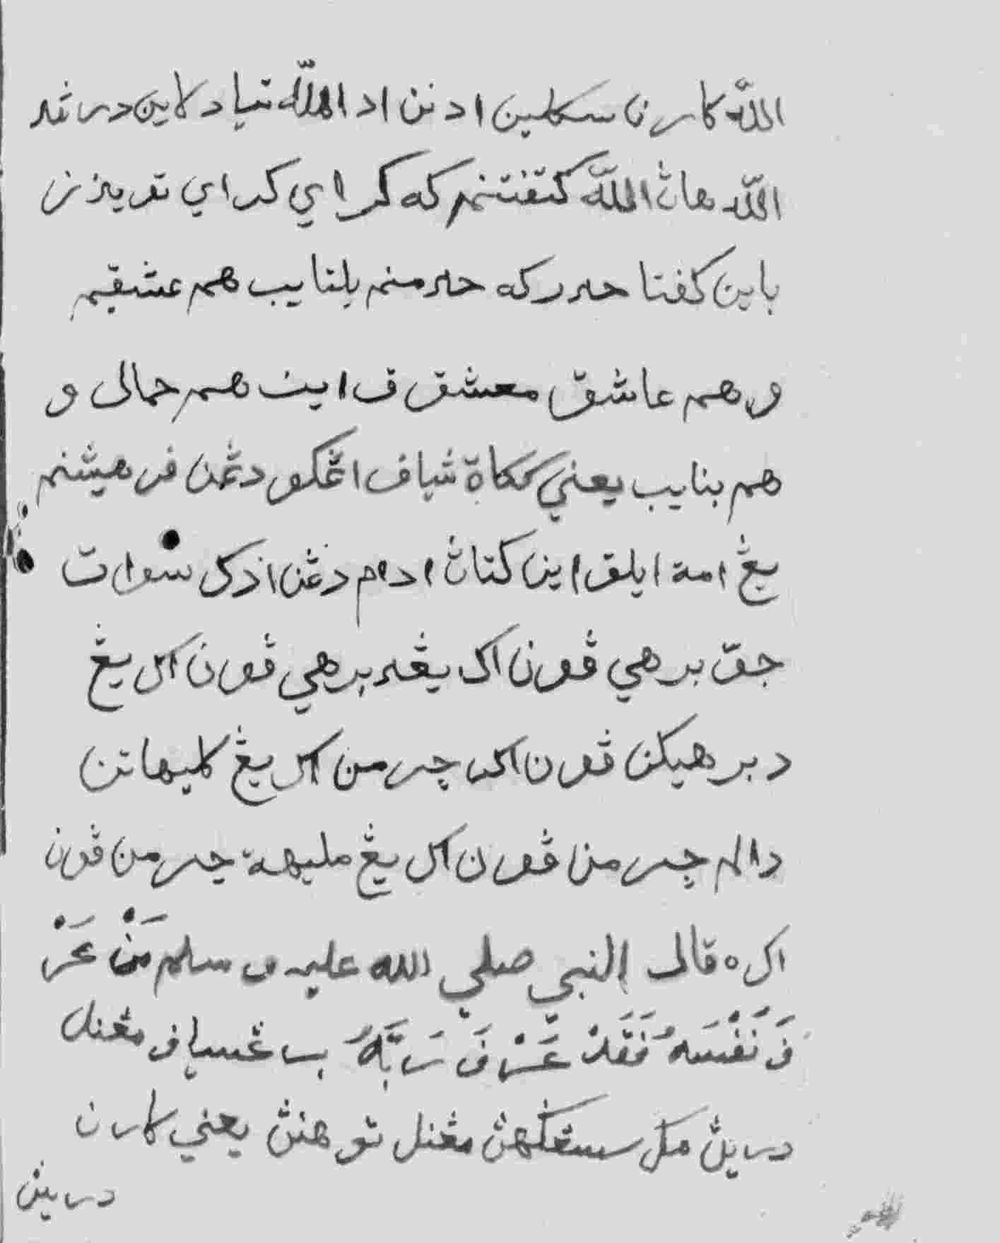 الله كارن سكلين ادنن اد الله تياد لاين درڤد
الله هاڽ الله كتفتنم كه كراي كداي
باين كفتا حيدر كه حيدر منم بلنايب هم عشقيم
و هم عاشق معشق ف اينت هم حمالي و
هم بنايب يعني ككاة شياف اڠكو دڠن فرهيشنم
يڠ امة ايلق اين كتاڽ ادام دڠن اندكل سوات
جق برهي ڤون اك يڠد برهي ڤون اك يڠ
د برهيكن ڤون اك چرمن اك يڠ كليهاتن
دالم چرمن ڤون اك يڠ مليهة چرمن ڤون
اك ه قال النبي صلي الله عليه و سلم مَنْ عَرَ
فَ نَفْسَهُ فَقَدْ عَرَفَ رَبَّهُ ب غسياف مڠنل
دريڽ مك سسڠكهڽ مڠنل توهنڽ يعني كارن
دريڽ